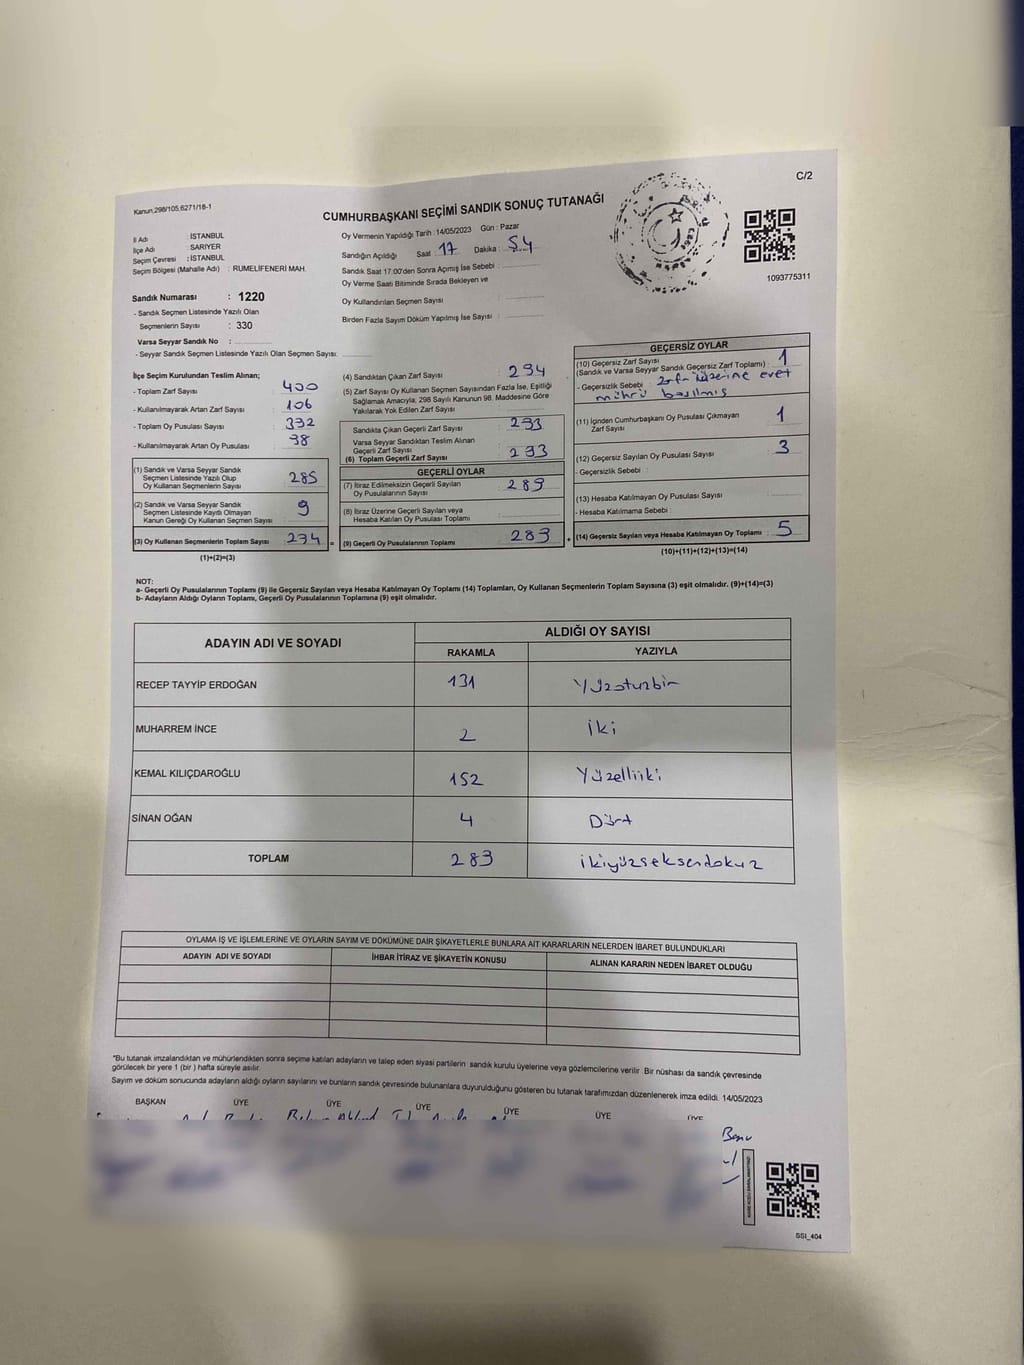 C/2
Kanun,298/105,6271/16-1
CUMHURBAŞKANI SEÇİMİ SANDIK SONUÇ TUTANAĞI
İl Adı : İSTANBUL
İlçe Adı : SARIYER
Seçim Çevresi : İSTANBUL
Seçim Bölgesi (Mahalle Adı) : RUMELİFENERİ MAH.
Sandık Numarası : 1220
- Sandık Seçmen Listesinde Yazılı Olan
Seçmenlerin Sayısı : 330
Varsa Seyyar Sandık No :
- Seyyar Sandık Seçmen Listesinde Yazılı Olan Seçmen Sayısı:
Oy Vermenin Yapıldığı Tarih : 14/05/2023 Gün : Pazar
Sandığın Açıldığı Saat : 17 Dakika : 54
Sandık Saat 17:00'den Sonra Açımış İse Sebebi :
Oy Verme Saati Bitiminde Sırada Bekleyen ve
Oy Kullandırılan Seçmen Sayısı
Birden Fazla Sayım Döküm Yapılmış İse Sayısı :
1093775311
İlçe Seçim Kurulundan Teslim Alınan;
- Toplam Zarf Sayısı : 400
- Kullanılmayarak Artan Zarf Sayısı : 106
- Toplam Oy Pusulası Sayısı : 332
- Kullanılmayarak Artan Oy Pusulası : 38
(1) Sandık ve Varsa Seyyar Sandık
Seçmen Listesinde Yazılı Olup
Oy Kullanan Seçmenlerin Sayısı : 285
(2) Sandık ve Varsa Seyyar Sandık
Seçmen Listesinde Kayıtlı Olmayan
Kanun Gereği Oy Kullanan Seçmen Sayısı : 9
(3) Oy Kullanan Seçmenlerin Toplam Sayısı : 294 =
(1)+(2)=(3)
(4) Sandıktan Çıkan Zarf Sayısı : 294
(5) Zarf Sayısı Oy Kullanan Seçmen Sayısından Fazla İse, Eşitliği
Sağlamak Amacıyla; 298 Sayılı Kanunun 98. Maddesine Göre
Yakılarak Yok Edilen Zarf Sayısı :
Sandıkta Çıkan Geçerli Zarf Sayısı : 293
Varsa Seyyar Sandıktan Teslim Alınan
Geçerli Zarf Sayısı :
(6) Toplam Geçerli Zarf Sayısı : 293
GEÇERLİ OYLAR
(7) İtiraz Edilmeksizin Geçerli Sayılan
Oy Pusulalarının Sayısı : 289
(8) İtiraz Üzerine Geçerli Sayılan veya
Hesaba Katılan Oy Pusulası Toplamı :
(9) Geçerli Oy Pusulalarının Toplamı : 289 +
GEÇERSİZ OYLAR
(10) Geçersiz Zarf Sayısı
(Sandık ve Varsa Seyyar Sandık Geçersiz Zarf Toplamı) : 1
- Geçersizlik Sebebi : zarfın üzerine evet
mührü basılmış
(11) İçinden Cumhurbaşkanı Oy Pusulası Çıkmayan
Zarf Sayısı : 1
(12) Geçersiz Sayılan Oy Pusulası Sayısı : 3
- Geçersizlik Sebebi :
(13) Hesaba Katılmayan Oy Pusulası Sayısı :
- Hesaba Katılmama Sebebi :
(14) Geçersiz Sayılan veya Hesaba Katılmayan Oy Toplamı : 5
(10)+(11)+(12)+(13)=(14)
NOT:
a- Geçerli Oy Pusulalarının Toplamı (9) ile Geçersiz Sayılan veya Hesaba Katılmayan Oy Toplamı (14) Toplamları, Oy Kullanan Seçmenlerin Toplam Sayısına (3) eşit olmalıdır. (9)+(14)=(3)
b- Adayların Aldığı Oyların Toplamı, Geçerli Oy Pusulalarının Toplamına (9) eşit olmalıdır.
ADAYIN ADI VE SOYADI ALDIĞI OY SAYISI
RAKAMLA YAZIYLA
RECEP TAYYİP ERDOĞAN 131 Yüzotuzbir
MUHARREM İNCE 2 iki
KEMAL KILIÇDAROĞLU 152 Yüzelliiki
SİNAN OĞAN 4 Dört
TOPLAM 289 ikiyüzseksendokuz
OYLAMA İŞ VE İŞLEMLERİNE VE OYLARIN SAYIM VE DÖKÜMÜNE DAİR ŞİKAYETLERLE BUNLARA AİT KARARLARIN NELERDEN İBARET BULUNDUKLARI
ADAYIN ADI VE SOYADI İHBAR İTİRAZ VE ŞİKAYETİN KONUSU ALINAN KARARIN NEDEN İBARET OLDUĞU
*Bu tutanak imzalandıktan ve mühürlendikten sonra seçime katılan adayların ve talep eden siyasi partilerin sandık kurulu üyelerine veya gözlemcilerine verilir. Bir nüshası da sandık çevresinde
görülecek bir yere 1 (bir ) hafta süreyle asılır.
Sayım ve döküm sonucunda adayların aldığı oyların sayılarını ve bunların sandık çevresinde bulunanlara duyurulduğunu gösteren bu tutanak tarafımızdan düzenlenerek imza edildi. 14/05/2023
BAŞKAN ÜYE ÜYE ÜYE ÜYE ÜYE ÜYE
SSI_404